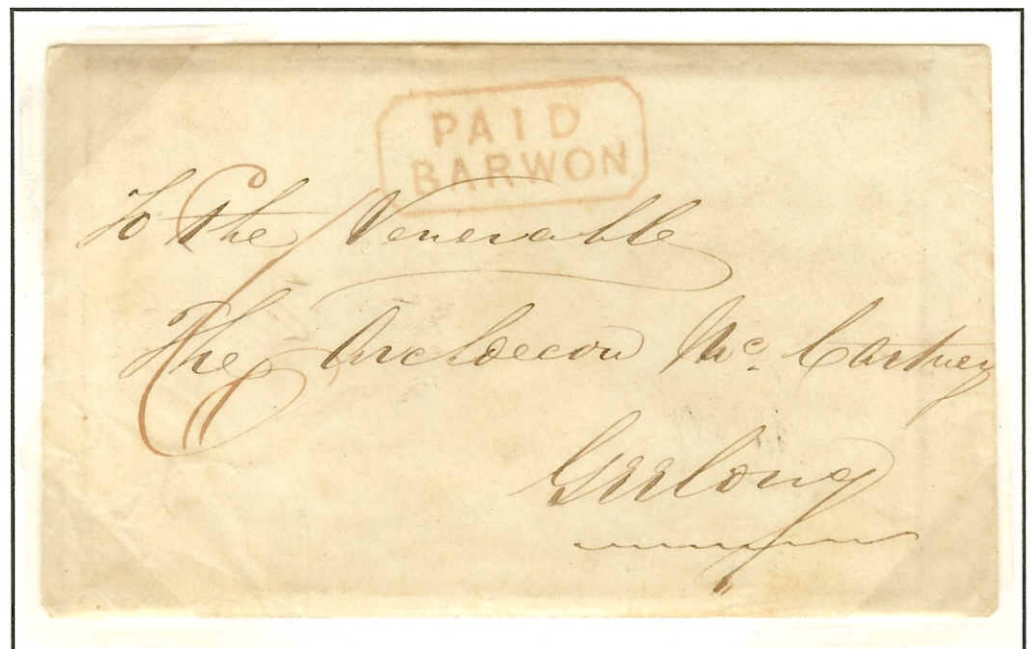 PAID
BARWON
To The Venerable
The Archdecon Mc. Cartney
Geelong